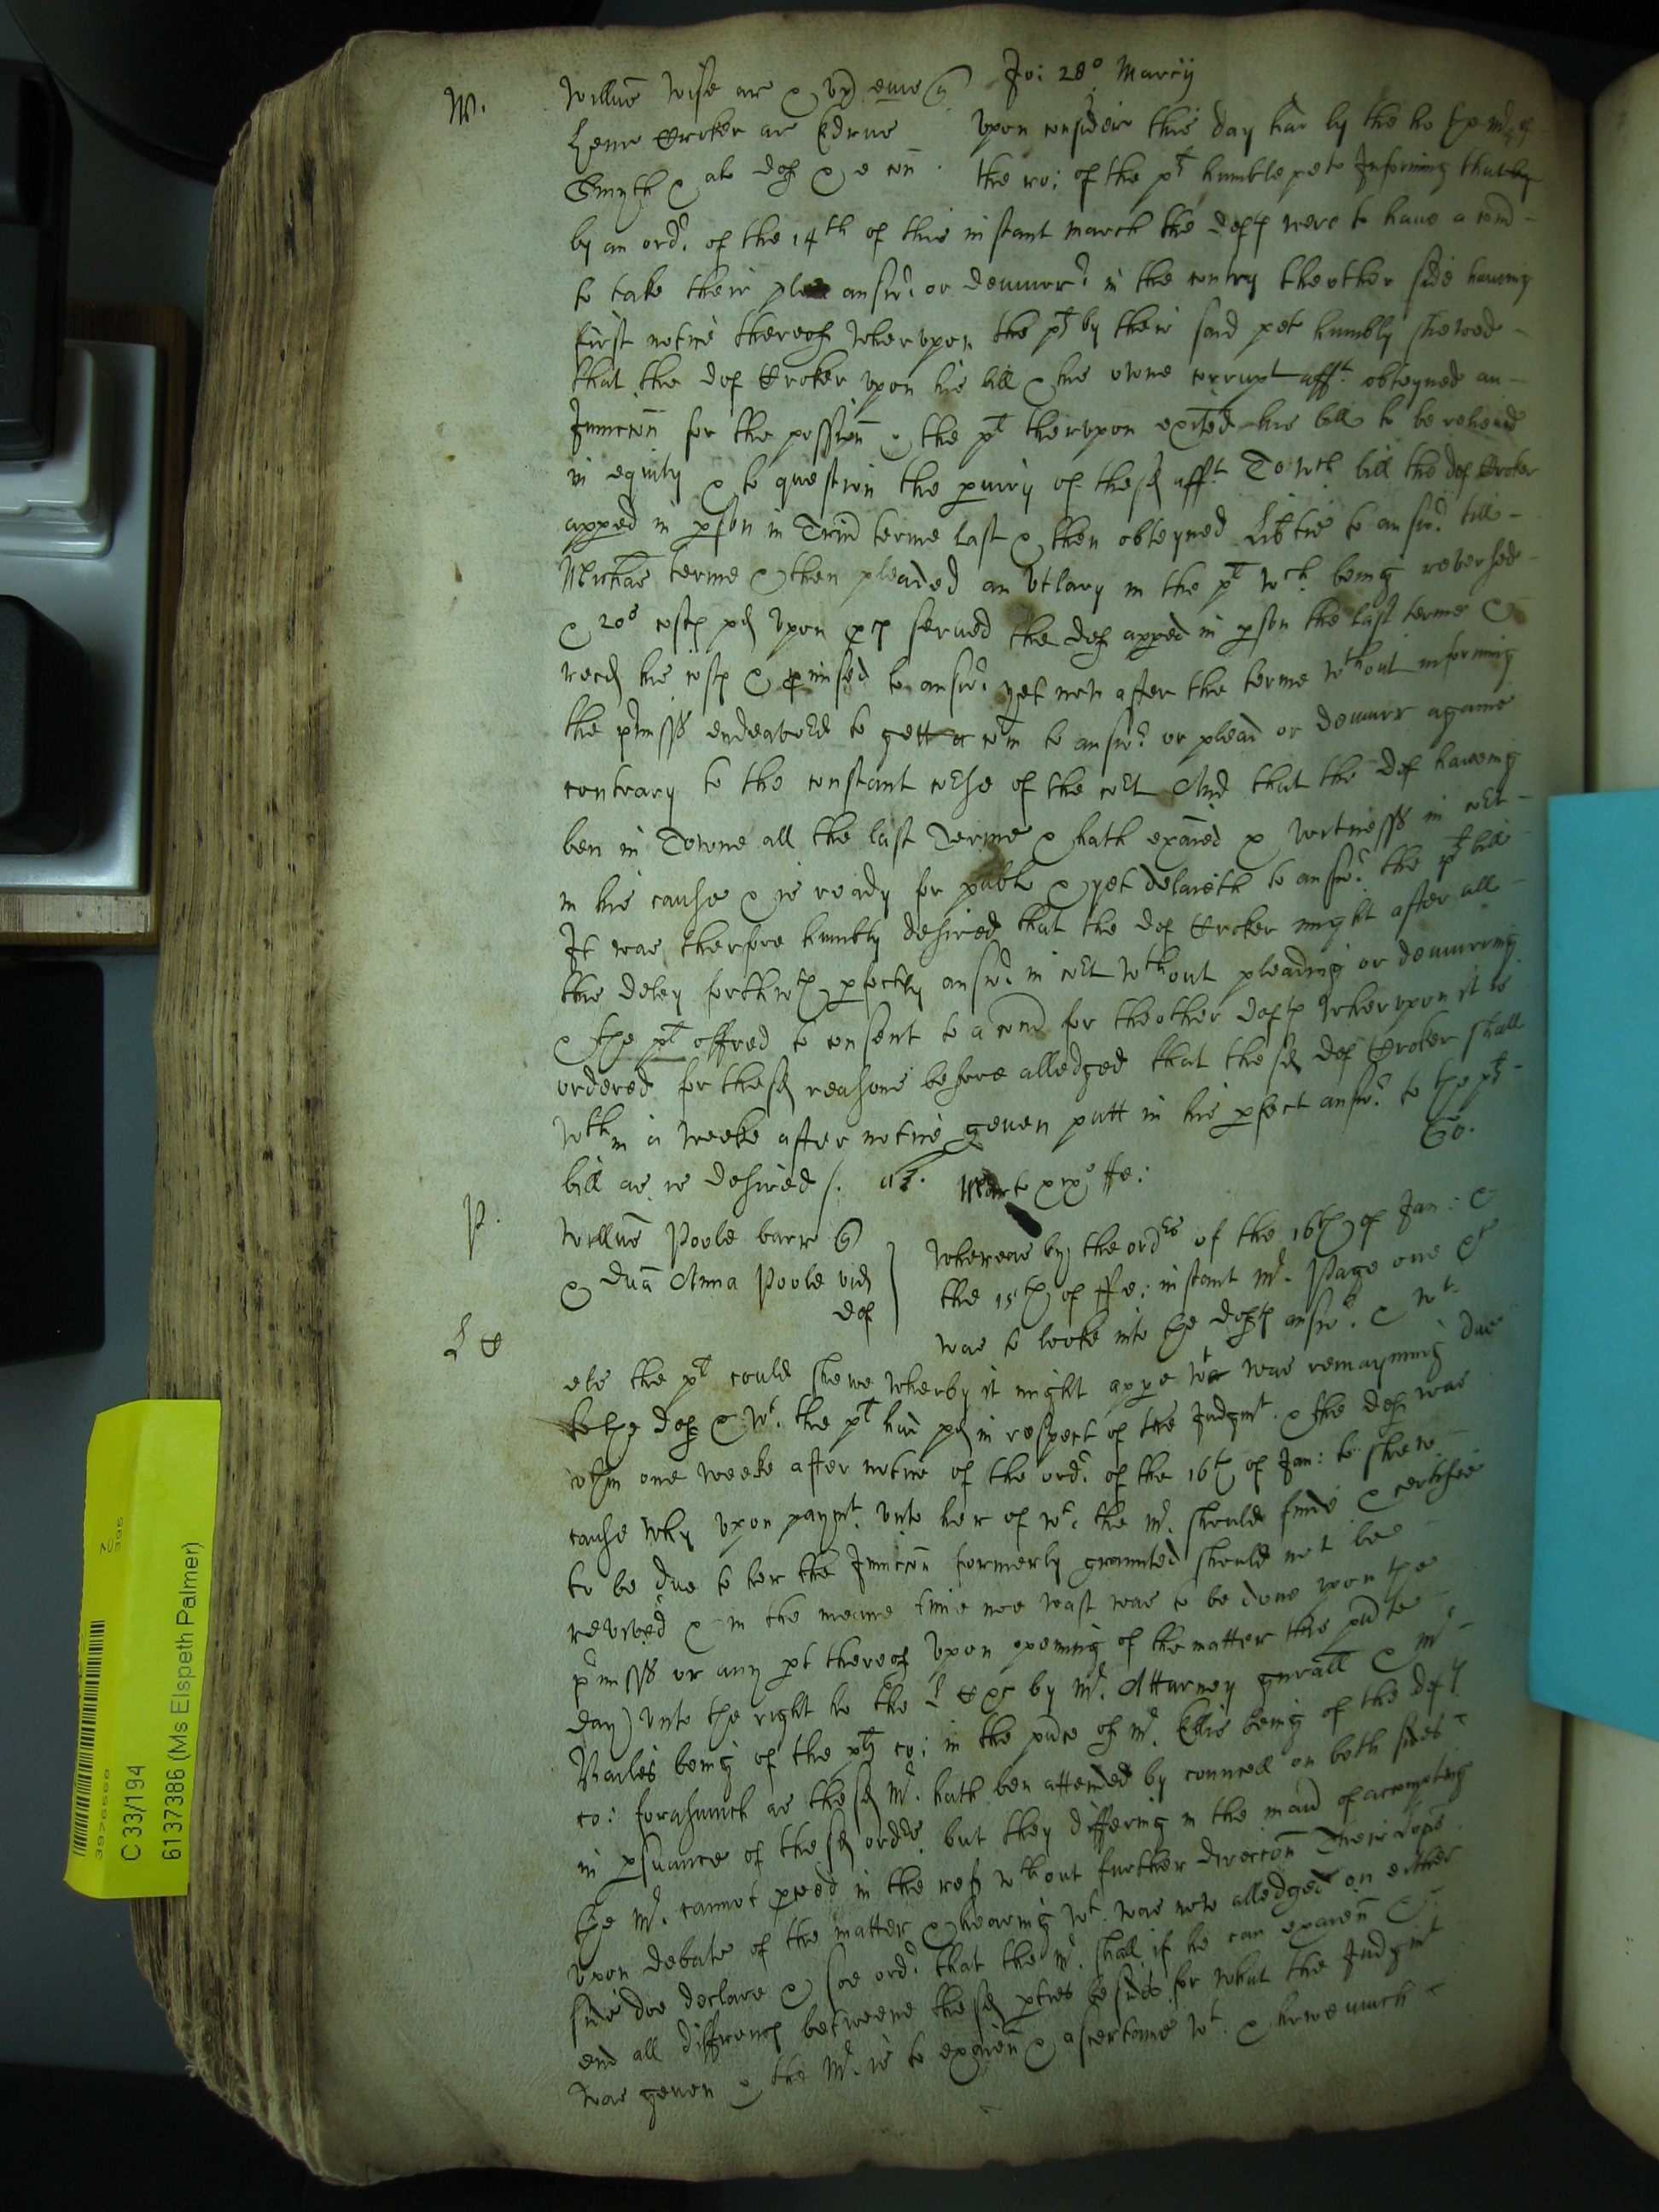 Jo: 28° Marcij
W. Willus Wise ar & ux eius q
Henr Croker ar Edrus Upon considerac this day had by the
Smyth & al def & e con the co: of the plt humble peto Informing that by
by an ordr of the 14th of this instant march the deftes were to have a comd
to take their plea answr or demurr in the contry thother side haveing
first notice thereof Wherupon the plt by their said pet humbly shewed
that the def Croker upon his bill & his owne corrupt afft obteyned an
Iniunccon for the possion & the plt therupon exited his bill to be releived
in equity & to question the periury of the sd afft To wch bill the def Croker
apped in pson in Trin terme last & then obteyned Libtie to answr till
Michas terme & then pleaded an Utlary in the plt wch being reversed
& 20s costs pd upon pces served the def apped in pson the last terme &
recd his costs & pmised to answr yet now after the terme wthout informing
the pmisss endeavors to gett a com to answr or plead or demurr againe
contrary to the constant corse of the cort And that the def haveing
ben in Towne all the last Terme & hath exaied witnesss in cort
in his cause & is ready for publi & yet delaieth to answr the plt bill
It was therfore humbly desired that the def Croker might after all
this delay forthwth pfectly answr in cort wthout pleading or demurring
& the plt offred to consent to a comd for thother deftes Wherupon it is
ordered for the sd reasons before alledged that the sd def Croker shall
wthin a weeke after notice geven putt in his pfect answr to the plts
bill as is desired /.
P. Willus Poole barr q Whereas by the ordrs of the 16th of Jan: &
& Dna Anna Poole vid def the 15th of ffe: instant Mr. Page one &c
L C was to looke into the deftes answr & wt
els the plt could shewe wherby it might appe wt was remayning due
to the def & wt the plt had pd in respect of the Judgmt & the def was
wthin one weeke after notice of the ordr of the 16th of Jan: to shew
cause why upon paymt unto her of wt the Mr. should finde & certifie
to be due to her the Iniunccon formerly graunted should not be
revived & in the meane time noe wast was to be done upon the
pmisss or any pt thereof Upon opening of the matter this pnte
day) unto the right ho the L C &c by Mr. Atturney gnrall & Mr
being of the plts co: in the pnce of Mr. Ellis being of the deftes
co: forasmuch as the sd Mr. hath ben attended by councell on both sides
in psuance of the sd ordrs but they differing in the manr of accompting
the Mr. cannot pceed in the refs wthout further direccon Their Lopps
upon debate of the matter & heareing wt was now alledged on either
side doe declare & soe ordr that the Mr. shall if he can exaien &
end all differencs betweene the sd pties besides for what the Judgmt
was geven & the Mr. is to exaien & ascertaine wt & howe much
C 33/194
6137386 (Ms Elspeth Palmer)